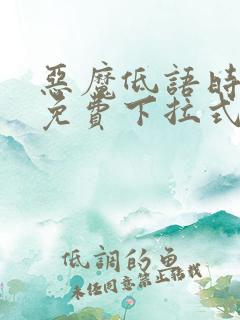 惡魔低語時
免費下拉式
低調的魚
未經同意禁止轉載